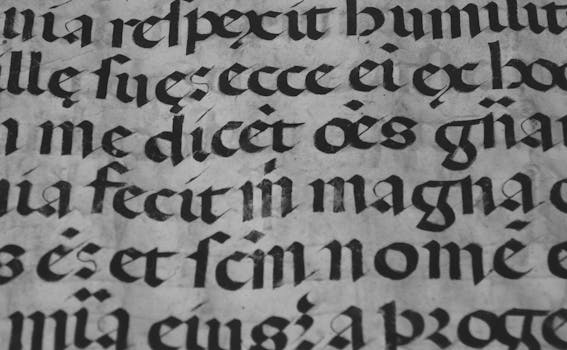 uia reſpexit humilit
illę ſuę: ecce ei ex hoc
me dicēt oēs gña
uia fecit m̄ magna
s ēs et ſcm̄ nomē e
miā eius: a proge